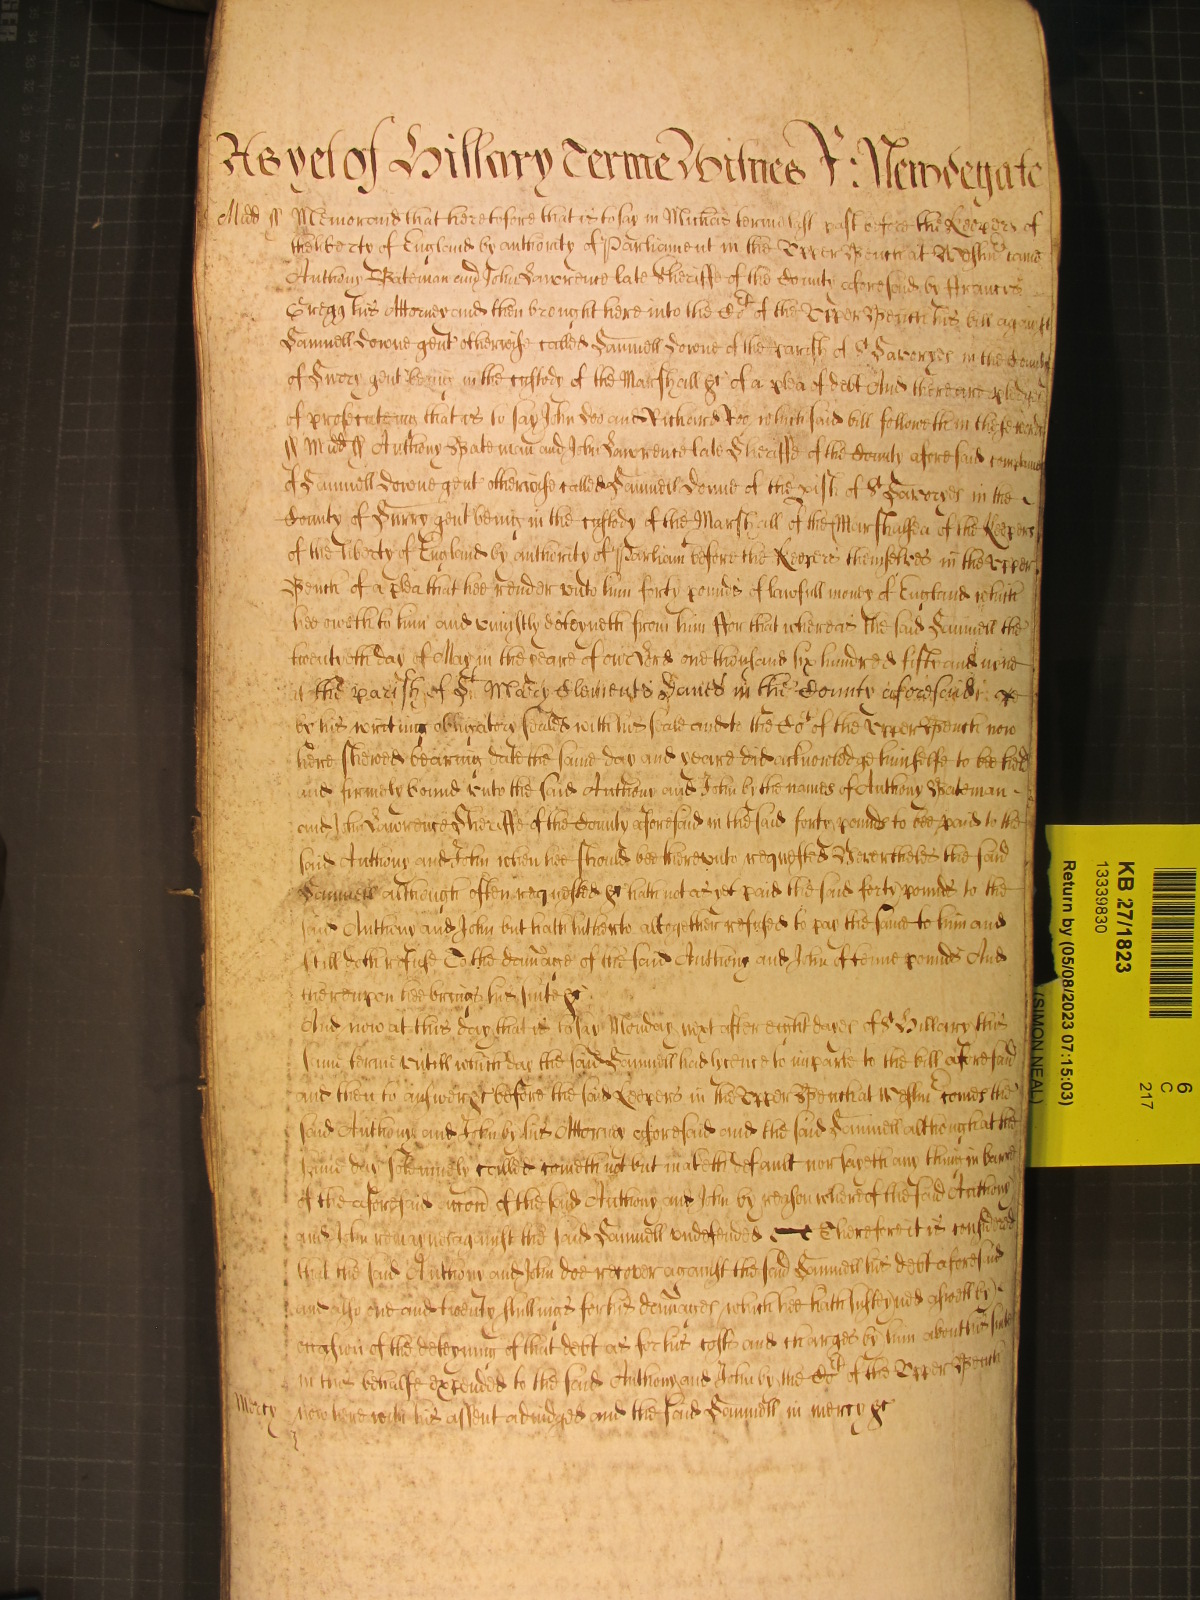 As yet of Hillary Terme Witnes R: Newdegate
Midd ss Memorand that heretofore that is to say in Michas terme last past before the Keepers of
the liberty of England by authority of Parliament in the Upper Bench at Westm came
Anthony Bateman and John Lawrence late Sheriffe of the County aforesaid by Francis
Gregg his Attorney and then brought here into the Cort of the Upper Bench his bill against
Samuell Downe gent otherwise called Samuell Downe of the parish of St Savoryes in the County
of Surry gent being in the custody of the Marshall &c of a plea of debt And there are pledges
of prosecuteing that is to say John Doe and Richard Roe which said bill followeth in these words
ss Midd ss Anthony Bateman and John Lawrence late Sheriffe of the County aforesaid complaine
of Samuell Downe gent otherwise called Samuell Downe of the pish of St Savoryes in the
County of Surry gent being in the custody of the Marshall of the Marshalsea of the Keepers
of the liberty of England by authority of Parliam before the Keepers themselves in the Upper
Bench of a plea that hee render unto him forty pounds of lawfull money of England which
hee oweth to him and uniustly deteyneth from him For that whereas the said Samuell the
twentyeth day of May in the yeare of our Lord one thousand six hundred fifty and nyne
at the parish of St Mary Clements Danes in the County aforesaide
by his writing obligatory sealed with his seale and to the Cort of the Upper Bench now
here shewed bearing date the same day and yeare did acknowledge himselfe to bee held
and firmely bound unto the said Anthony and John by the names of Anthony Bateman
and John Lawrence Sheriffe of the County aforesaid in the said forty pounds to bee paid to the
said Anthony and John when hee should bee thereunto requested Neverthelesse the said
Samuell although often requested &c hath not as yet paid the said forty pounds to the
said Anthony and John but hath hitherto altogether refused to pay the same to him and
still doth refuse To the damage of the said Anthony and John of tenne pounds And
thereupon hee brings his suite &c
And now at this day that is to say Monday next after eight dayes of St Hillary this
same terme untill which day the said Samuell had lycence to imparle to the bill aforesaid
and then to answer &c before the said Keepers in the Upper Bench at Westm comes the
said Anthony and John by his Attorney aforesaid and the said Samuell although at the
same day solemnely called cometh not but maketh default nor sayeth any thing in barre
of the aforesaid accon of the said Anthony and John by reason whereof the said Anthony
and John remaynes against the said Samuell undefended Therefore it is considered
that the said Anthony and John doe recover against the said Samuell his debt aforesaid
and also one and twenty shillings for his damages which hee hath susteyned aswell by
occasion of the deteyning of that debt as for his costs and charges by him about his suite
in this behalfe expended to the said Anthony and John by the Cort of the Upper Bench
Mercy now here with his assent adiudged and the said Samuell in mercy &c
KB 27/1823
13339830
Return by (05/08/2023 07:15:03)
(SIMON NEAL)
6
C
217